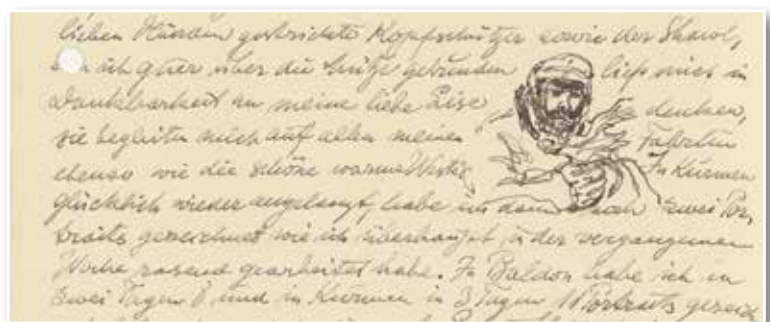 lieben Händen gestrickte Kopfschützer sowie der Shawl,
den ich quer über die Mütze gebunden ließ mich in
Dankbarkeit an meine liebe Lise denken,
sie begleiten mich auf allen meinen Fahrten
ebenso wie die schöne warme Weste, In Kurmen
glücklich wieder angelangt, habe ich dann noch zwei Por,
traits gezeichnet wie ich überhaupt in der vergangenen
Woche rasend gearbeitet habe. In Baldon habe ich in
zwei Tagen 8 und in Kurmen in 3 Tagen Portraits gezeich